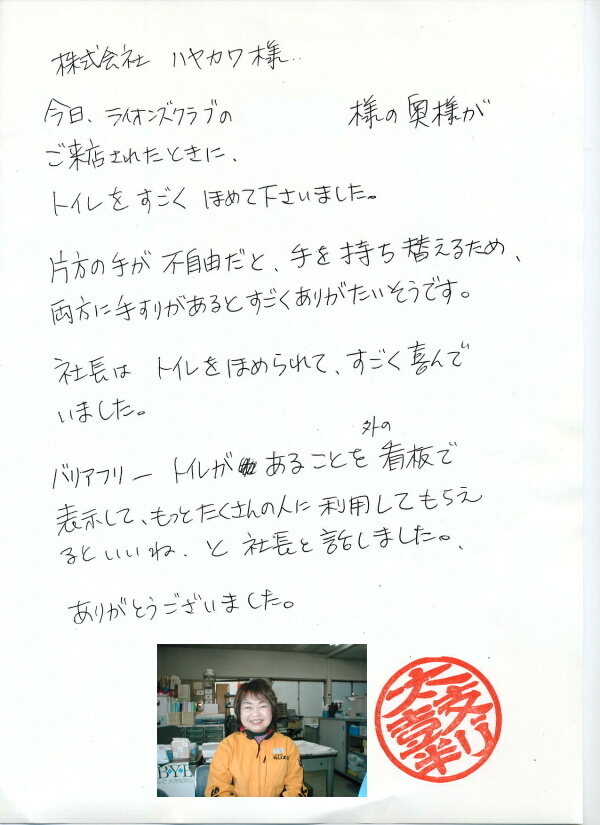 株式会社 ハヤカワ様
今日、ライオンズクラブの 様の奥様が
ご来店されたときに、
トイレをすごく ほめて下さいました。
片方の手が 不自由だと、手を持ち替えるため、
両方に手すりがあるとすごくありがたいそうです。
社長は トイレをほめられて、すごく喜んで
いました。
外の
バリアフリー トイレが あることを 看板で
表示して、もっとたくさんの人に利用してもらえ
るといいね. と 社長と話しました。
ありがとうございました。
BYL